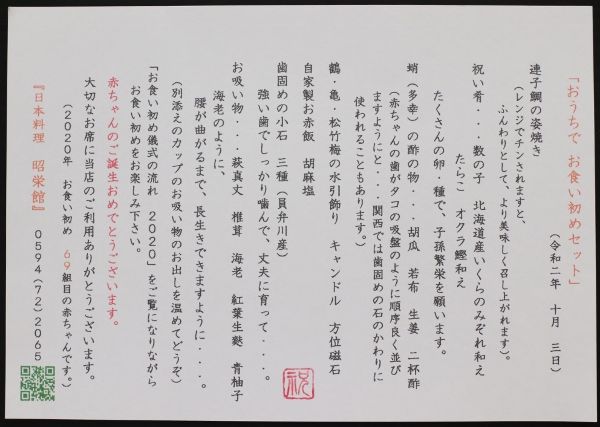 「おうちで お食い初めセット」
（令和二年 十月 三日）
連子鯛の姿焼き
（レンジでチンされますと、
ふんわりとして、より美味しく召し上がれます）。
祝い肴・・・数の子 北海道産いくらのみぞれ和え
たらこ オクラ鰹和え
たくさんの卵・種で、子孫繁栄を願います。
蛸（多幸）の酢の物・・・胡瓜 若布 生姜 二杯酢
（赤ちゃんの歯がタコの吸盤のように順序良く並び
ますようにと・・・関西では歯固めの石のかわりに
使われることもあります。）
鶴・亀・松竹梅の水引飾り キャンドル 方位磁石
自家製お赤飯 胡麻塩
歯固めの小石 三種（員弁川産）
強い歯でしっかり噛んで、丈夫に育って・・・。
お吸い物・・・萩真丈 椎茸 海老 紅葉生麩 青柚子
海老のように、
腰が曲がるまで、長生きできますように・・・。
（別添えのカップのお吸い物のお出しを温めてどうぞ）
「お食い初め儀式の流れ 2020」をご覧になりながら
お食い初めをお楽しみ下さい。
赤ちゃんのご誕生おめでとうございます。
大切なお席に当店のご利用ありがとうございます。
（2020年 お食い初め 69組目の赤ちゃんです。）
『日本料理 昭栄館』 0594（72）2065
祝